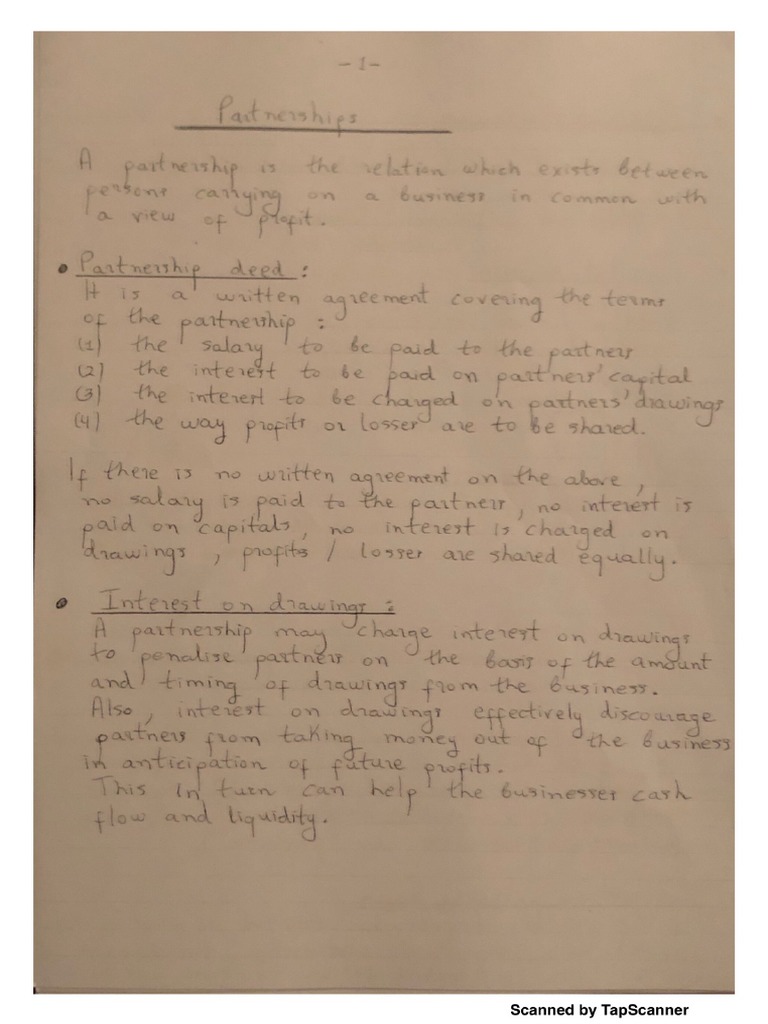 - 1 -
Partnerships
A partnership is the relation which exists between
persons carrying on a business in common with
a view of profit.
• Partnership deed :
It is a written agreement covering the terms
of the partnership :
(1) the salary to be paid to the partners
(2) the interest to be paid on partners' capital
(3) the interest to be charged on partners' drawings
(4) the way profits or losses are to be shared.
If there is no written agreement on the above,
no salary is paid to the partners, no interest is
paid on capitals, no interest is charged on
drawings, profits / losses are shared equally.
• Interest on drawings :
A partnership may charge interest on drawings
to penalise partners on the basis of the amount
and timing of drawings from the business.
Also, interest on drawings effectively discourage
partners from taking money out of the business
in anticipation of future profits.
This in turn can help the businesses cash
flow and liquidity.
Scanned by TapScanner